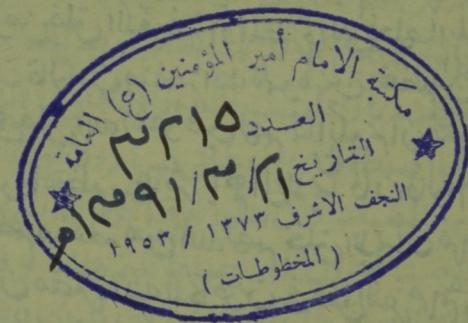 مكتبة الامام أمير المؤمنين (ع) العامة
العدد ٣٢١٥
التاريخ ٢١/٣/١٣٩١م
النجف الاشرف ١٣٧٣ / ١٩٥٣
( المخطوطات )